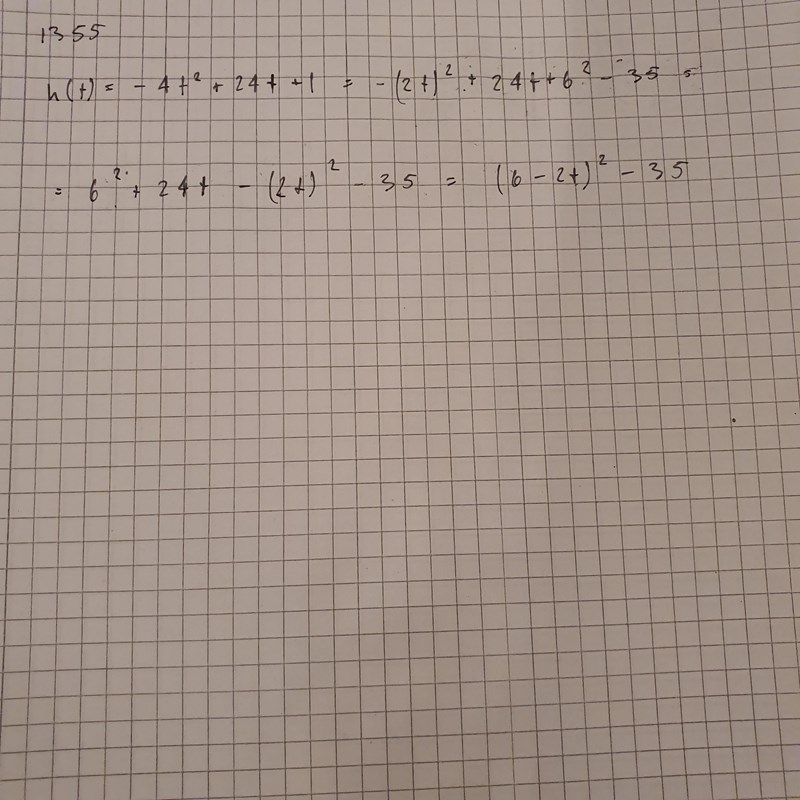 1355
h(t) = - 4t² + 24t + 1 = -(2t)² + 24t + 6² - 35 =
= 6² + 24t - (2t)² - 35 = (6 - 2t)² - 35